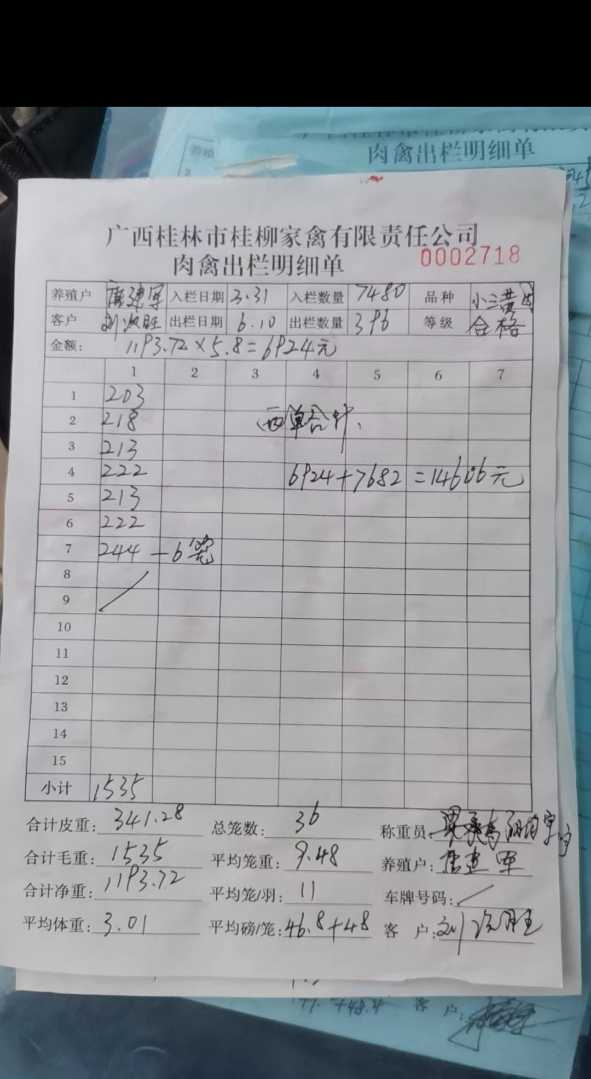 肉禽出栏明细单
广西桂林市桂柳家禽有限责任公司
肉禽出栏明细单 0002718
养殖户 唐建军 入栏日期 3.31 入栏数量 7480 品种 小三黄
客户 出栏日期 6.10 出栏数量 396 等级 合格
金额: 1193.72×5.8=6924元
1 2 3 4 5 6 7
1 203
2 218 两单合计、
3 213
4 222 6924+7682=14606元
5 213
6 222
7 244 — 6笼
8
9
10
11
12
13
14
15
小计 1535
合计皮重: 341.28 总笼数: 36 称重员:
合计毛重: 1535 平均笼重: 9.48 养殖户: 唐建军
合计净重: 1193.72 平均笼/羽: 11 车牌号码:
平均体重: 3.01 平均磅/笼: 46.8+48 客户: 刘